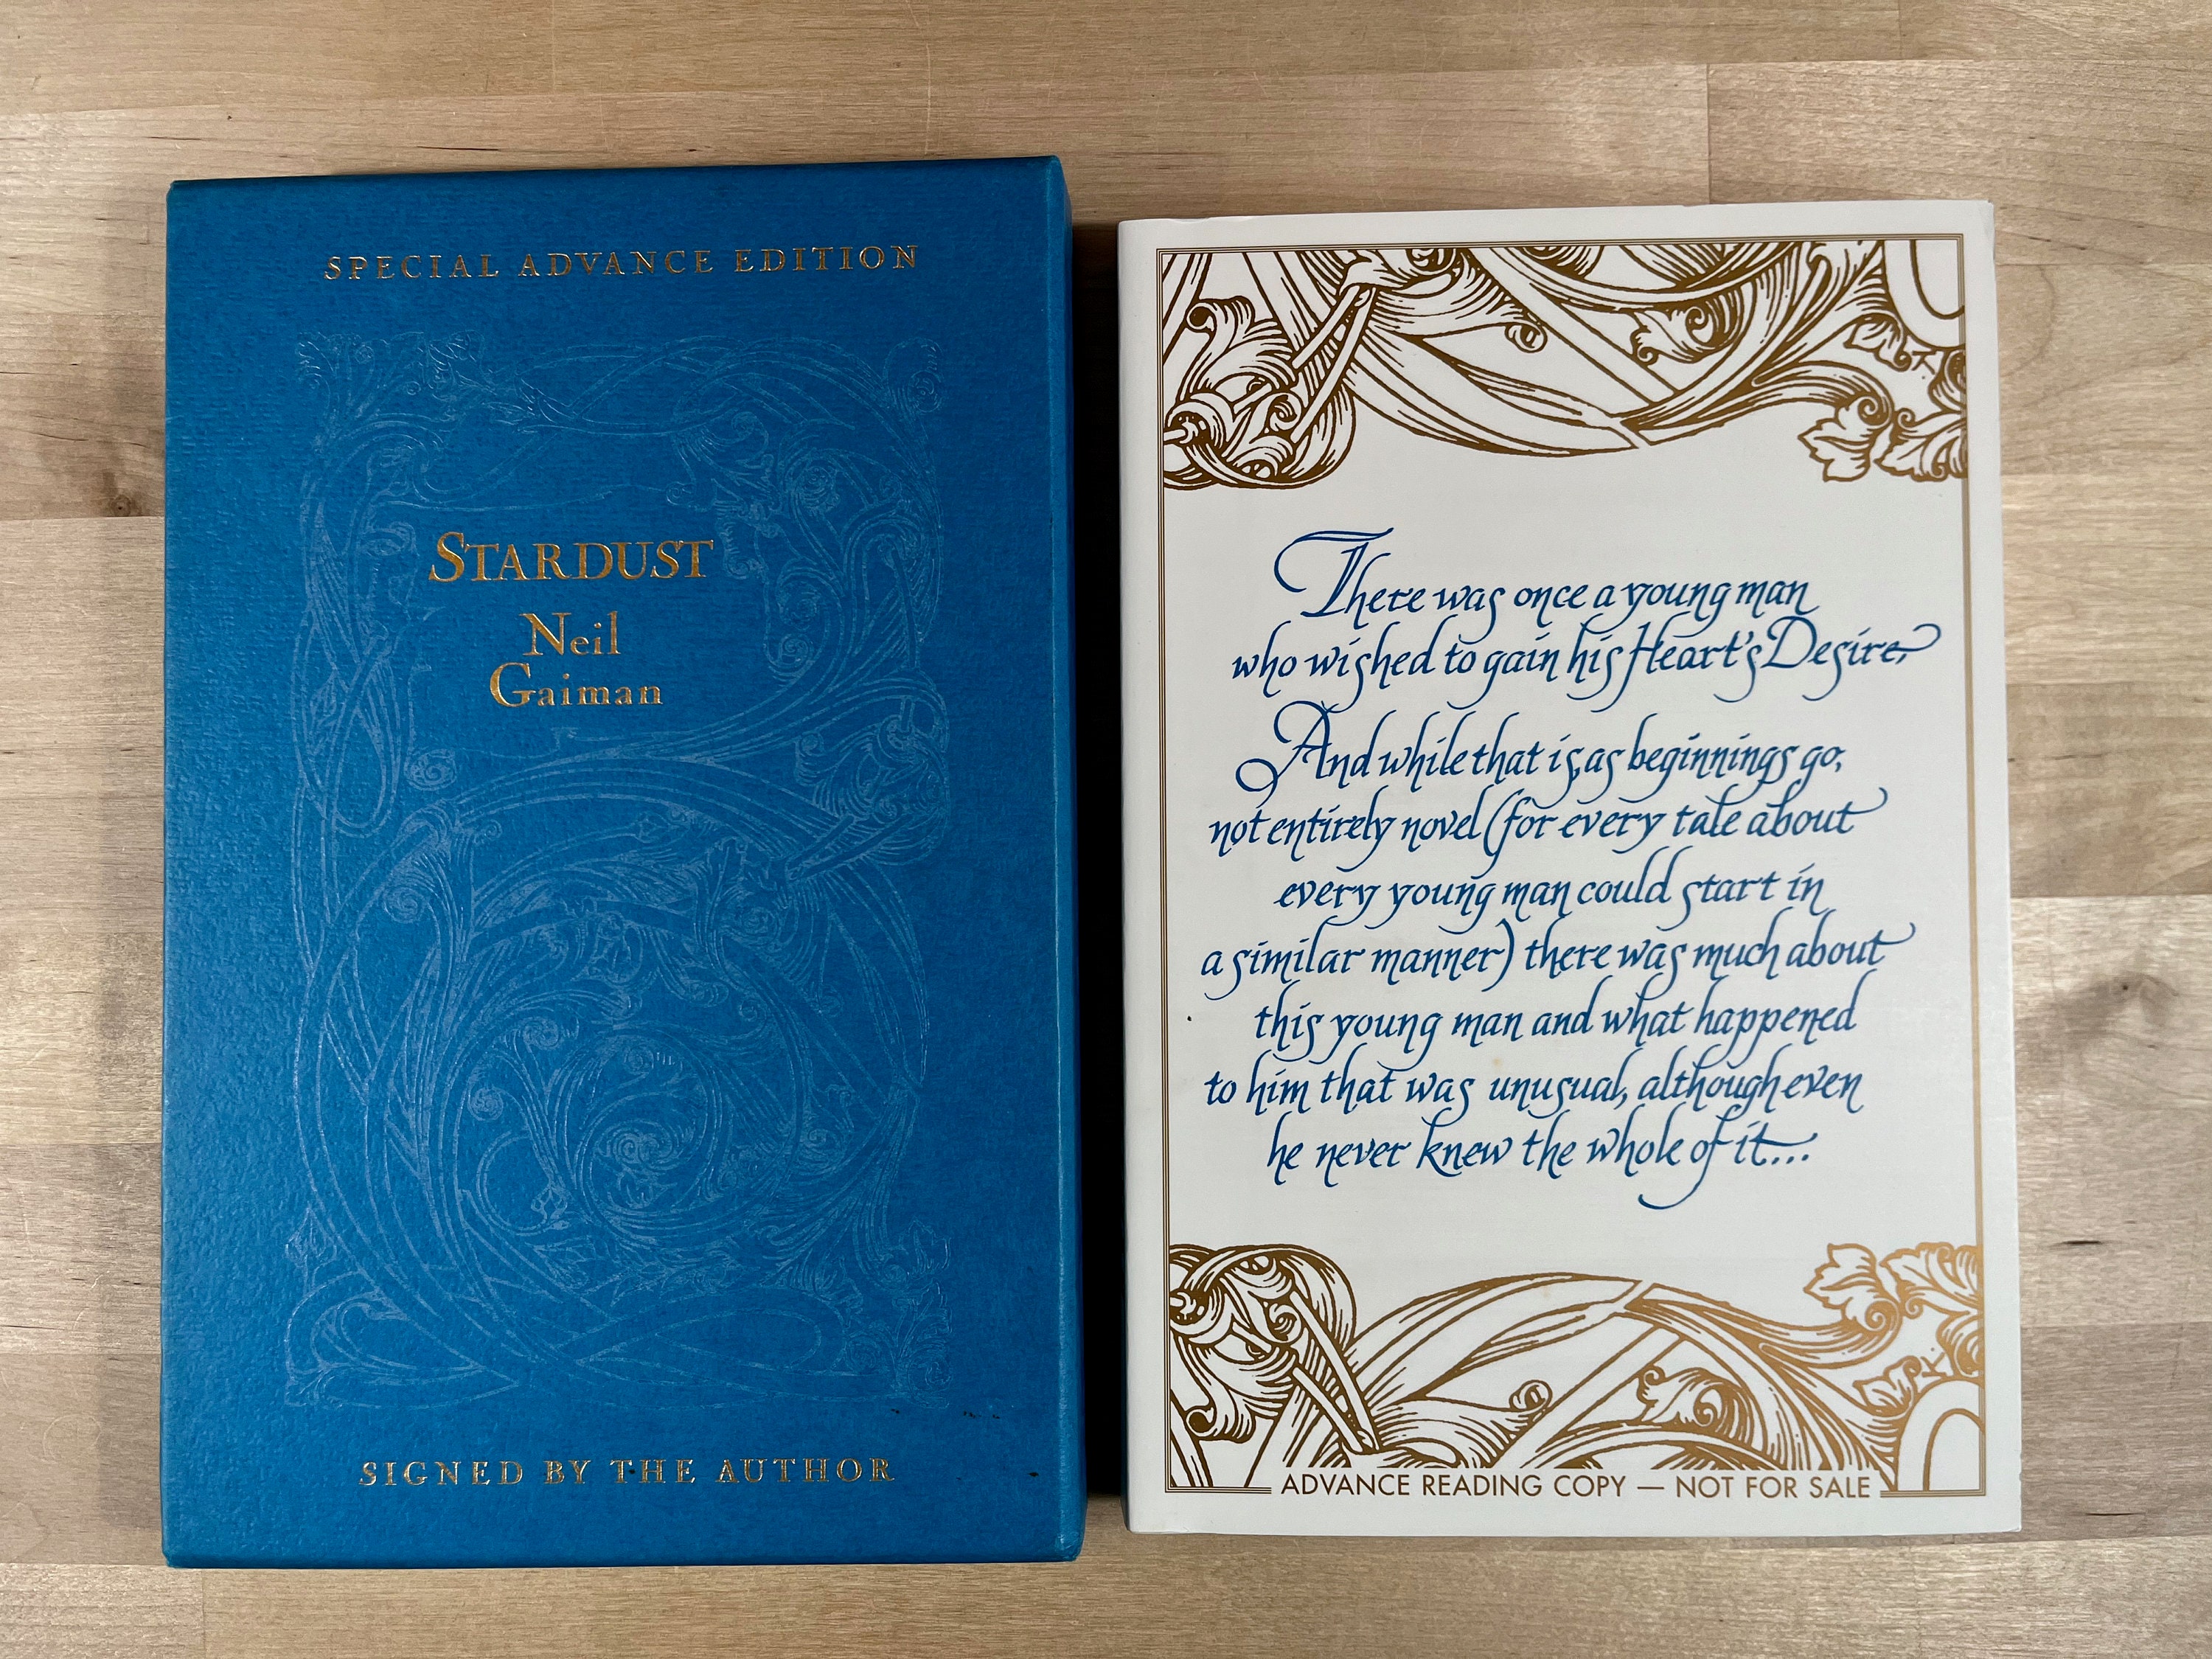 SPECIAL ADVANCE EDITION
STARDUST
Neil
Gaiman
SIGNED BY THE AUTHOR
There was once a young man
who wished to gain his Heart's Desire.
And while that is, as beginnings go,
not entirely novel (for every tale about
every young man could start in
a similar manner) there was much about
this young man and what happened
to him that was unusual, although even
he never knew the whole of it...
ADVANCE READING COPY — NOT FOR SALE